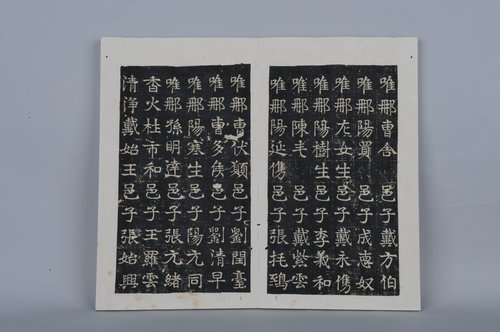 唯那曹舍 邑子戴方伯
唯那陽買 邑子成惠奴
唯那左女生邑子戴永儁
唯那陽樹生邑子李敬和
唯那陳毛 邑子戴紫雲
唯那陽延儁邑子張托鵄
唯那曹伏顛邑子劉閣臺
唯那曹多侯邑子劉清早
唯那陽寒生邑子陽元同
唯那孫明達邑子張元緒
香火杜市和邑子王羅雲
清淨戴始王邑子張始興